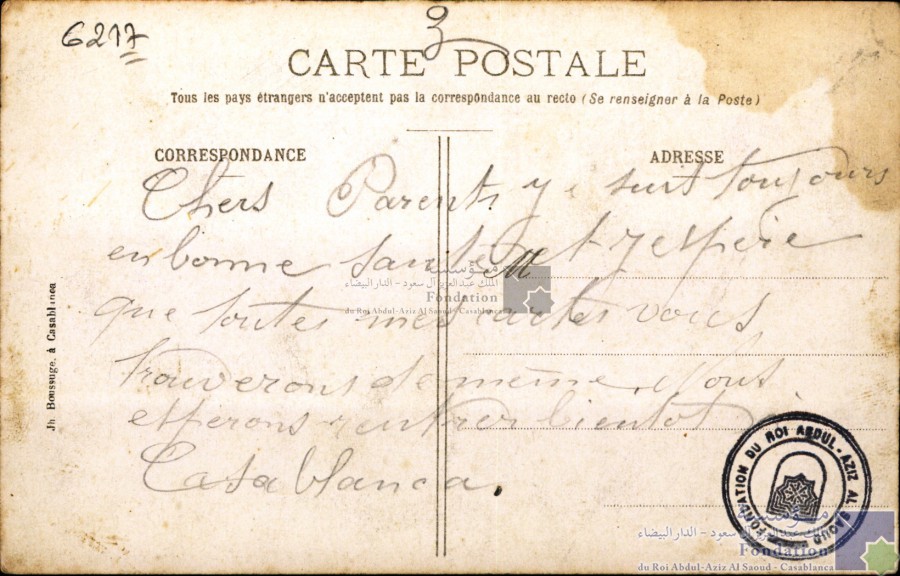 6217
3
CARTE POSTALE
Tous les pays étrangers n'acceptent pas la correspondance au recto (Se renseigner à la Poste)
CORRESPONDANCE
ADRESSE
Chers Parents je suit toujours
en bonne santé et j espère
que toutes mes cartes vous
trouverons de même. Nous
esperons rentrer bientot
Casablanca.
Jh Boussuge, à Casablanca
مؤسسة
الملك عبد العزيز آل سعود - الدار البيضاء
Fondation
du Roi Abdul-Aziz Al Saoud - Casablanca
FONDATION DU ROI ABDUL-AZIZ AL SAOUD
مؤسسة
الملك عبد العزيز آل سعود - الدار البيضاء
Fondation
du Roi Abdul-Aziz Al Saoud - Casablanca